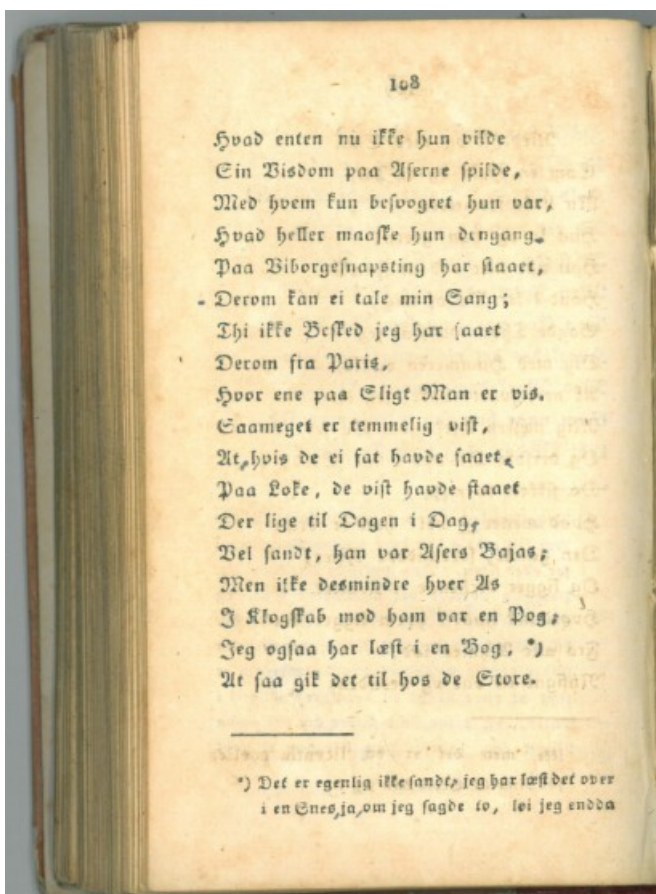 108
Hvad enten nu ikke hun vilde
Sin Visdom paa Aserne spilde,
Med hvem kun besvogret hun var,
Hvad heller maaske hun dengang,
Paa Viborgesnapsting har staaet,
Derom kan ei tale min Sang;
Thi ikke Besked jeg har faaet
Derom fra Paris,
Hvor ene paa Sligt Man er vis.
Saameget er temmelig vist,
At, hvis de ei fat havde faaet,
Paa Loke, de vist havde staaet
Der lige til Dagen i Dag,
Vel sandt, han var Asers Bajas;
Men ikke desmindre hver As
I Klogskab mod ham var en Pog;
Jeg ogsaa har læst i en Bog, *)
At saa gik det til hos de Store.
*) Det er egenlig ikke sandt, jeg har læst det over
i en Snes, ja, om jeg sagde to, løi jeg endda